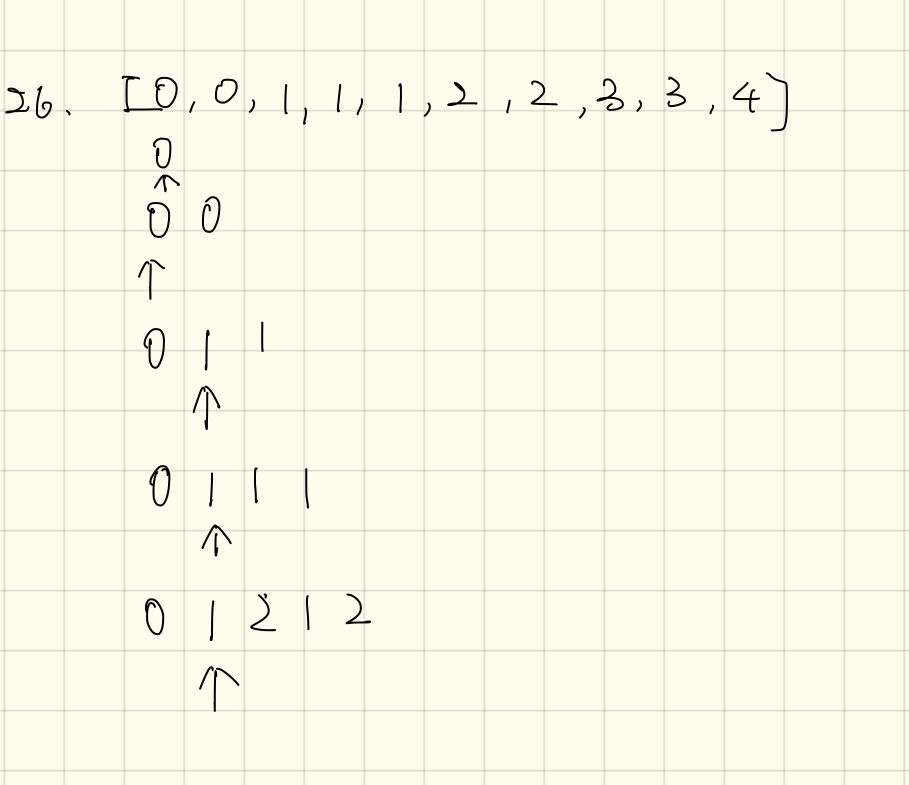 26. [0, 0, 1, 1, 1, 2, 2, 3, 3, 4]
0
↑
0 0
↑
0 1 1
↑
0 1 1 1
↑
0 1 2 1 2
↑